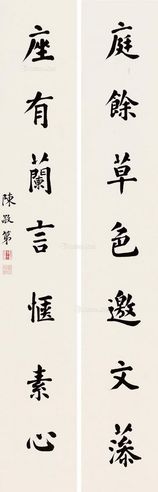 庭餘草色邀文藻
座有蘭言愜素心
陳敬第